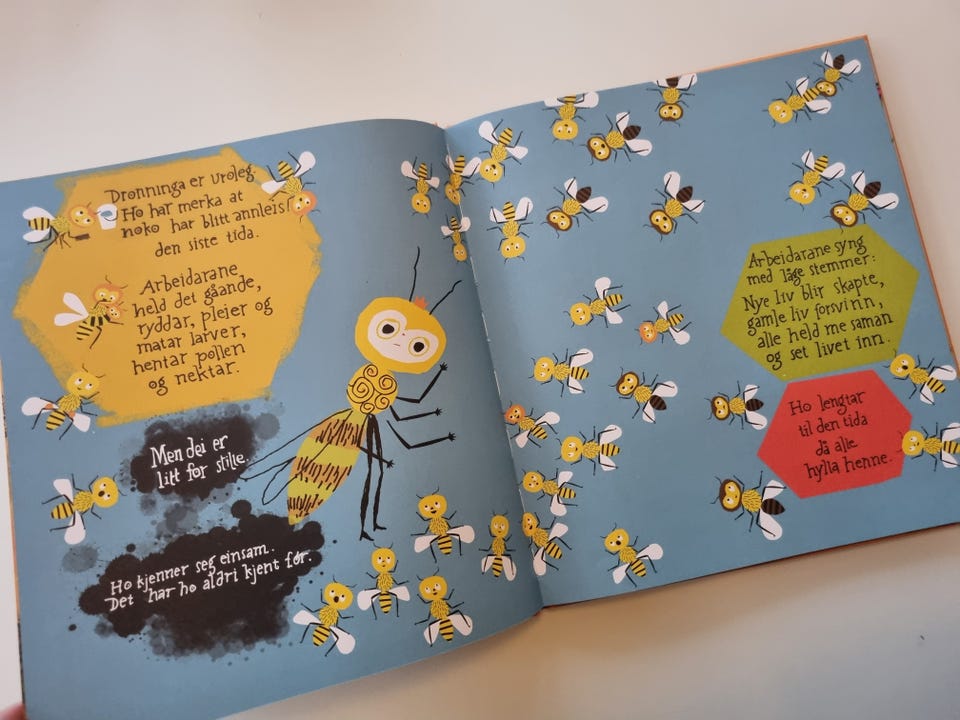 Dronninga er uroleg.
Ho har merka at
noko har blitt annleis
den siste tida.
Arbeidarane
held det gåande,
ryddar, pleier og
matar larver,
hentar pollen
og nektar.
Men dei er
litt for stille.
Ho kjenner seg einsam.
Det har ho aldri kjent før.
Arbeidarane syng
med låge stemmer:
Nye liv blir skapte,
gamle liv forsvinn,
alle held me saman
og set livet inn.
Ho lengtar
til den tida
då alle
hylla henne.